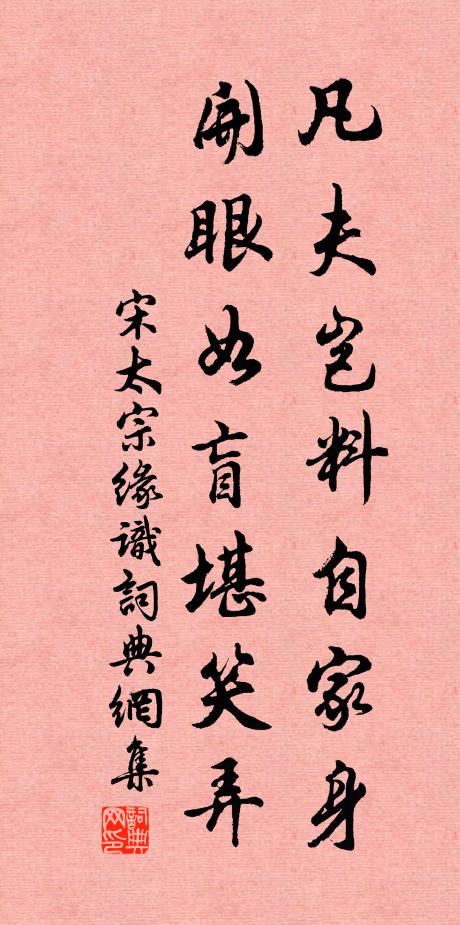 凡夫岂料自家身
開眼如盲堪笑弄
宋太宗緣識詞典網集
詞典網印